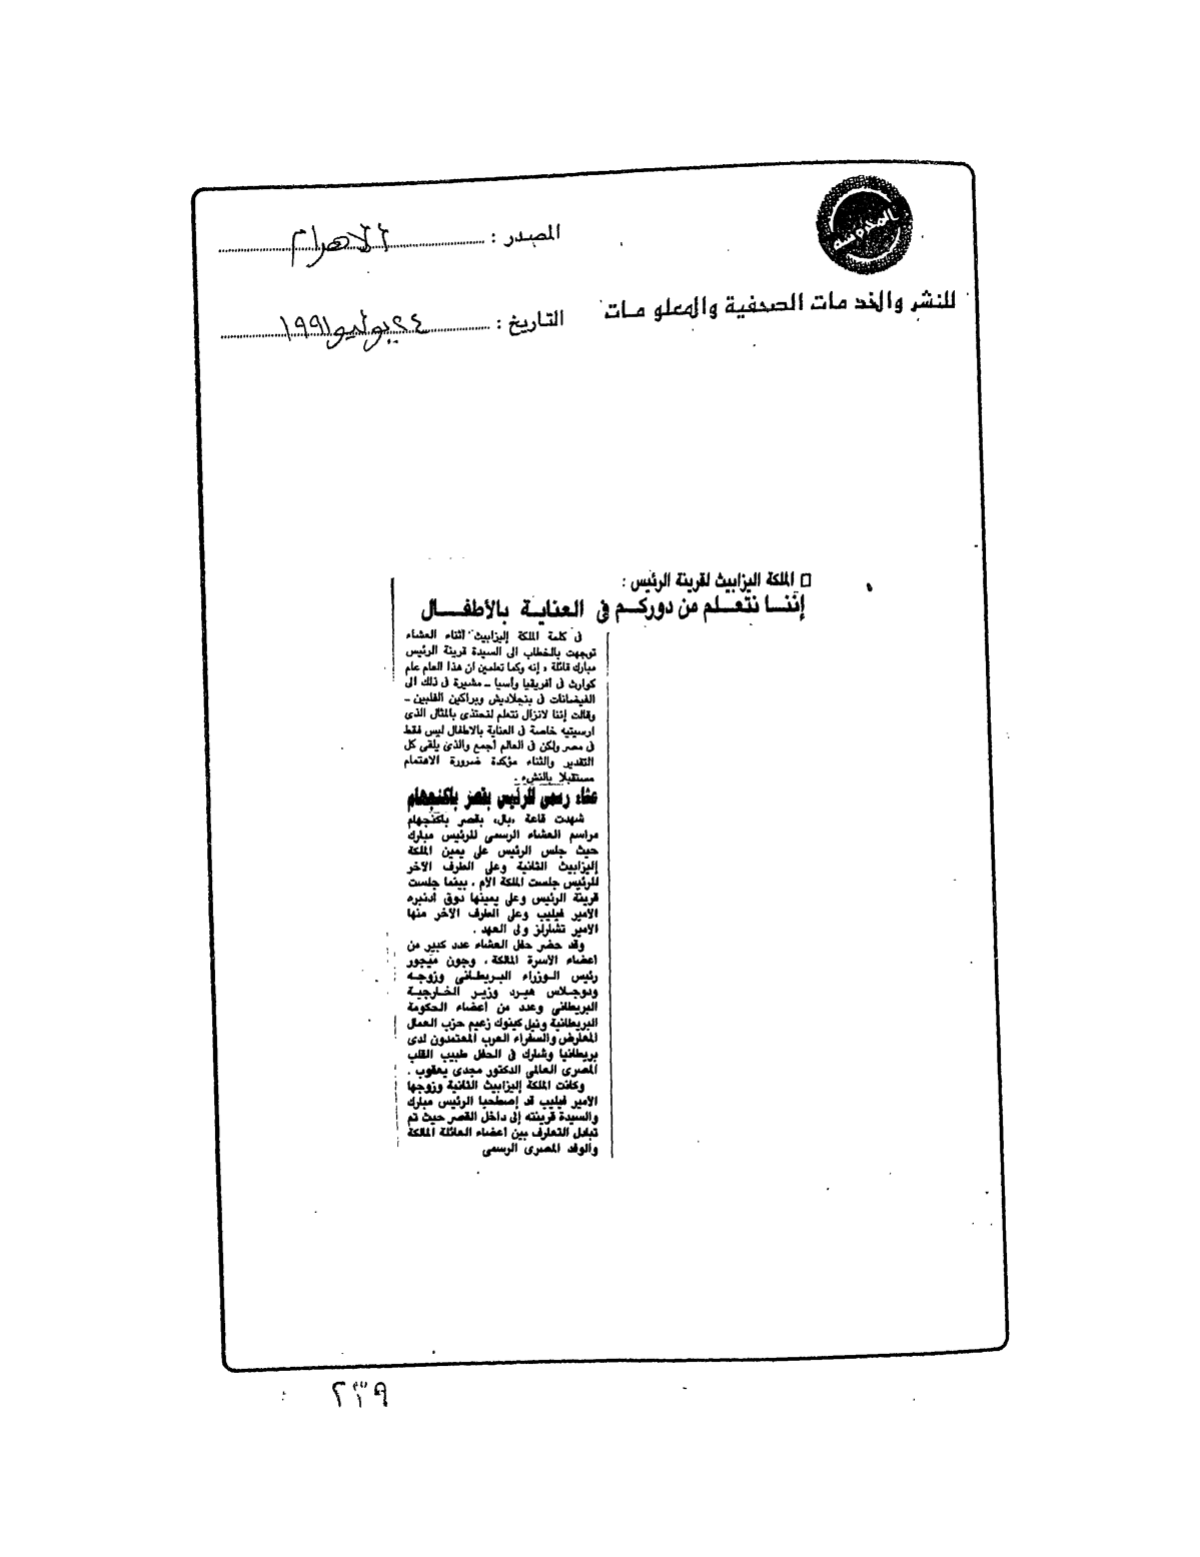 المحروسة
المصدر : الاهرام
للنشر والخدمات الصحفية والمعلومات
التاريخ : ٢٤ يوليو ١٩٩١
□ الملكة اليزابيث لقرينة الرئيس :
إننا نتعلم من دوركم فى العناية بالأطفال
فى كلمة الملكة إليزابيث أثناء العشاء
توجهت بالخطاب الى السيدة قرينة الرئيس
مبارك قائلة : إنه وكما تعلمين ان هذا العام عام
كوارث فى أفريقيا وآسيا ـ مشيرة فى ذلك الى
الفيضانات فى بنجلاديش وبراكين الفلبين ـ
وقالت إننا لانزال نتعلم لنحتذى بالمثال الذى
ارسيتيه خاصة فى العناية بالاطفال ليس فقط
فى مصر ولكن فى العالم أجمع والذى يلقى كل
التقدير والثناء مؤكدة ضرورة الاهتمام
مستقبلا بالنشء .
عشاء رسمى للرئيس بقصر باكنجهام
شهدت قاعة «بال» بقصر باكنجهام
مراسم العشاء الرسمى للرئيس مبارك
حيث جلس الرئيس على يمين الملكة
إليزابيث الثانية وعلى الطرف الآخر
للرئيس جلست الملكة الأم ، بينما جلست
قرينة الرئيس وعلى يمينها دوق أدنبره
الأمير فيليب وعلى الطرف الآخر منها
الأمير تشارلز ولى العهد .
وقد حضر حفل العشاء عدد كبير من
أعضاء الأسرة المالكة ، وجون ميجور
رئيس الوزراء البريطانى وزوجه
ودوجلاس هيرد وزير الخارجية
البريطانى وعدد من أعضاء الحكومة
البريطانية ونيل كينوك زعيم حزب العمال
المعارض والسفراء العرب المعتمدون لدى
بريطانيا وشارك فى الحفل طبيب القلب
المصرى العالمى الدكتور مجدى يعقوب .
وكانت الملكة إليزابيث الثانية وزوجها
الأمير فيليب قد إصطحبا الرئيس مبارك
والسيدة قرينته إلى داخل القصر حيث تم
تبادل التعارف بين أعضاء العائلة المالكة
والوفد المصرى الرسمى
٢٣٩